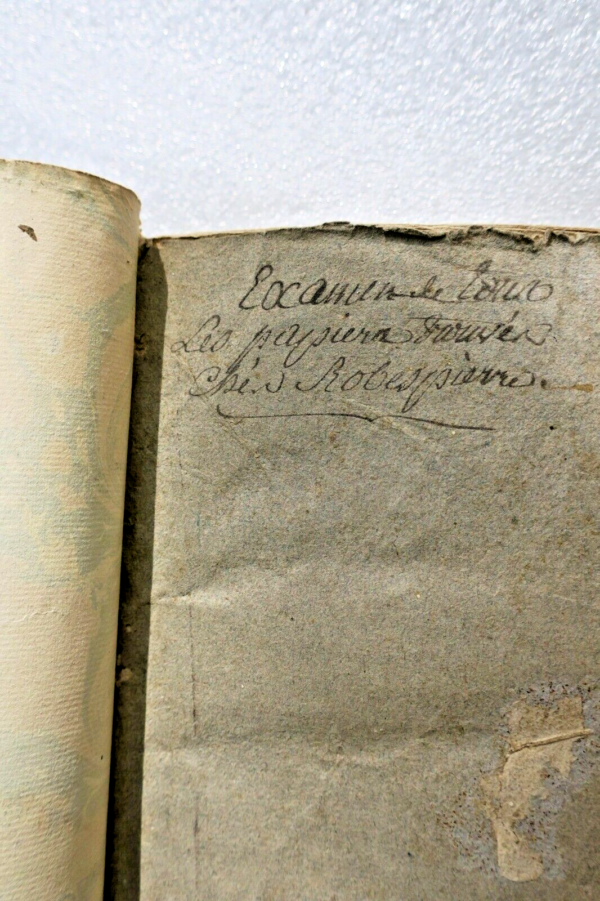 Examen de Tous
Les papiers Trouvés
Chés Robespierre.